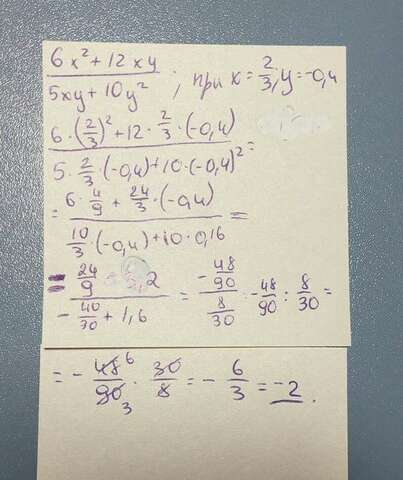 6x² + 12xy / 5xy + 10y² ; при x = 2/3, y = -0,4
6 · (2/3)² + 12 · 2/3 · (-0,4) / 5 · 2/3 · (-0,4) + 10 · (-0,4)² =
= 6 · 4/9 + 24/3 · (-0,4) / 10/3 · (-0,4) + 10 · 0,16 =
= 24/9 - 3,2 / - 40/30 + 1,6 = - 48/90 / 8/30 = - 48/90 : 8/30 =
= - 48 6 / 90 3 · 30/8 = - 6/3 = -2.